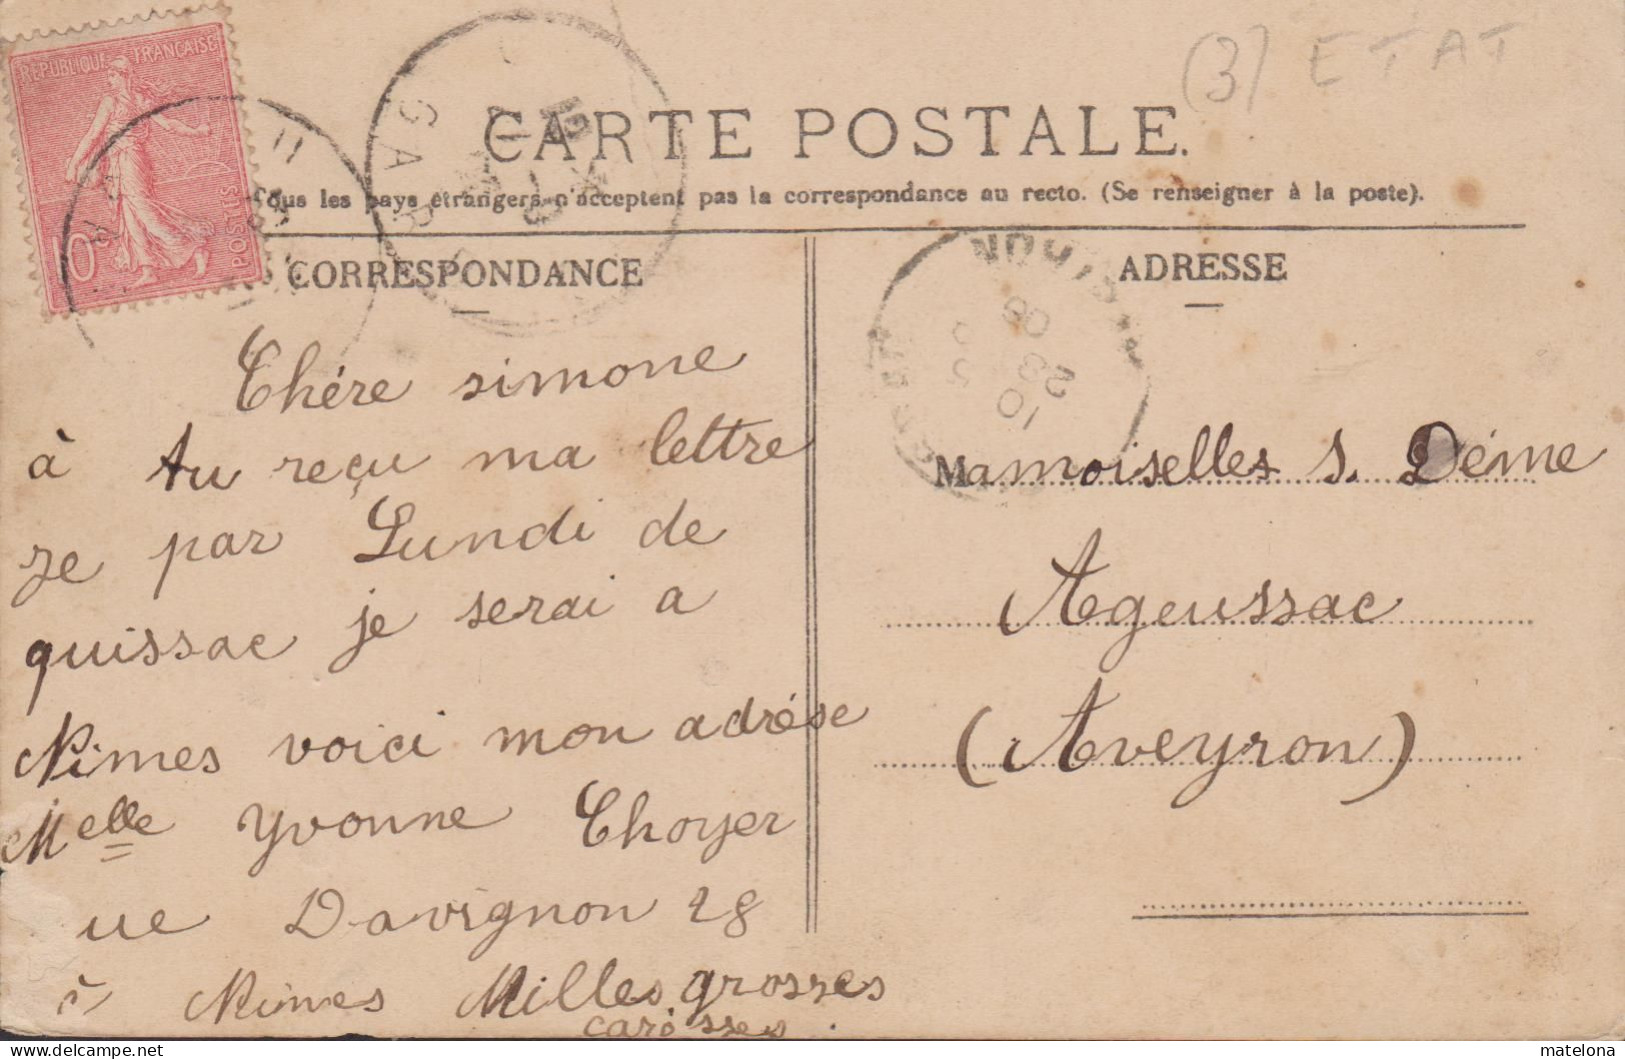 (3) ETAT
REPUBLIQUE FRANCAISE
POSTES
10c
GARD
CARTE POSTALE.
Tous les pays étrangers n'acceptent pas la correspondance au recto. (Se renseigner à la poste).
CORRESPONDANCE
Chére simone
à tu reçu ma lettre
je par Lundi de
quissac je serai a
Nimes voici mon adrése
Melle Yvonne Choyer
ue Davignon 28
à Nimes Milles grosses
carèsses.
ADRESSE
Mamoiselles S. Déime
Ageussac
(Aveyron)
matelona